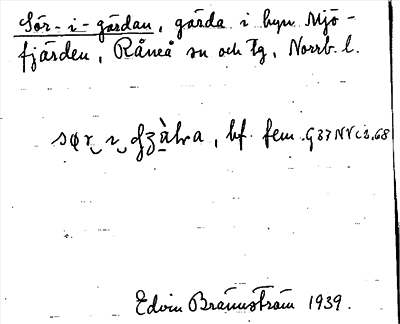 Sör-i-gärdan, gärda i byn Mjö-
fjärden, Råneå sn och tg, Norrb. l.
bf. fem. G37NVc2.68
Edvin Brännström 1939.